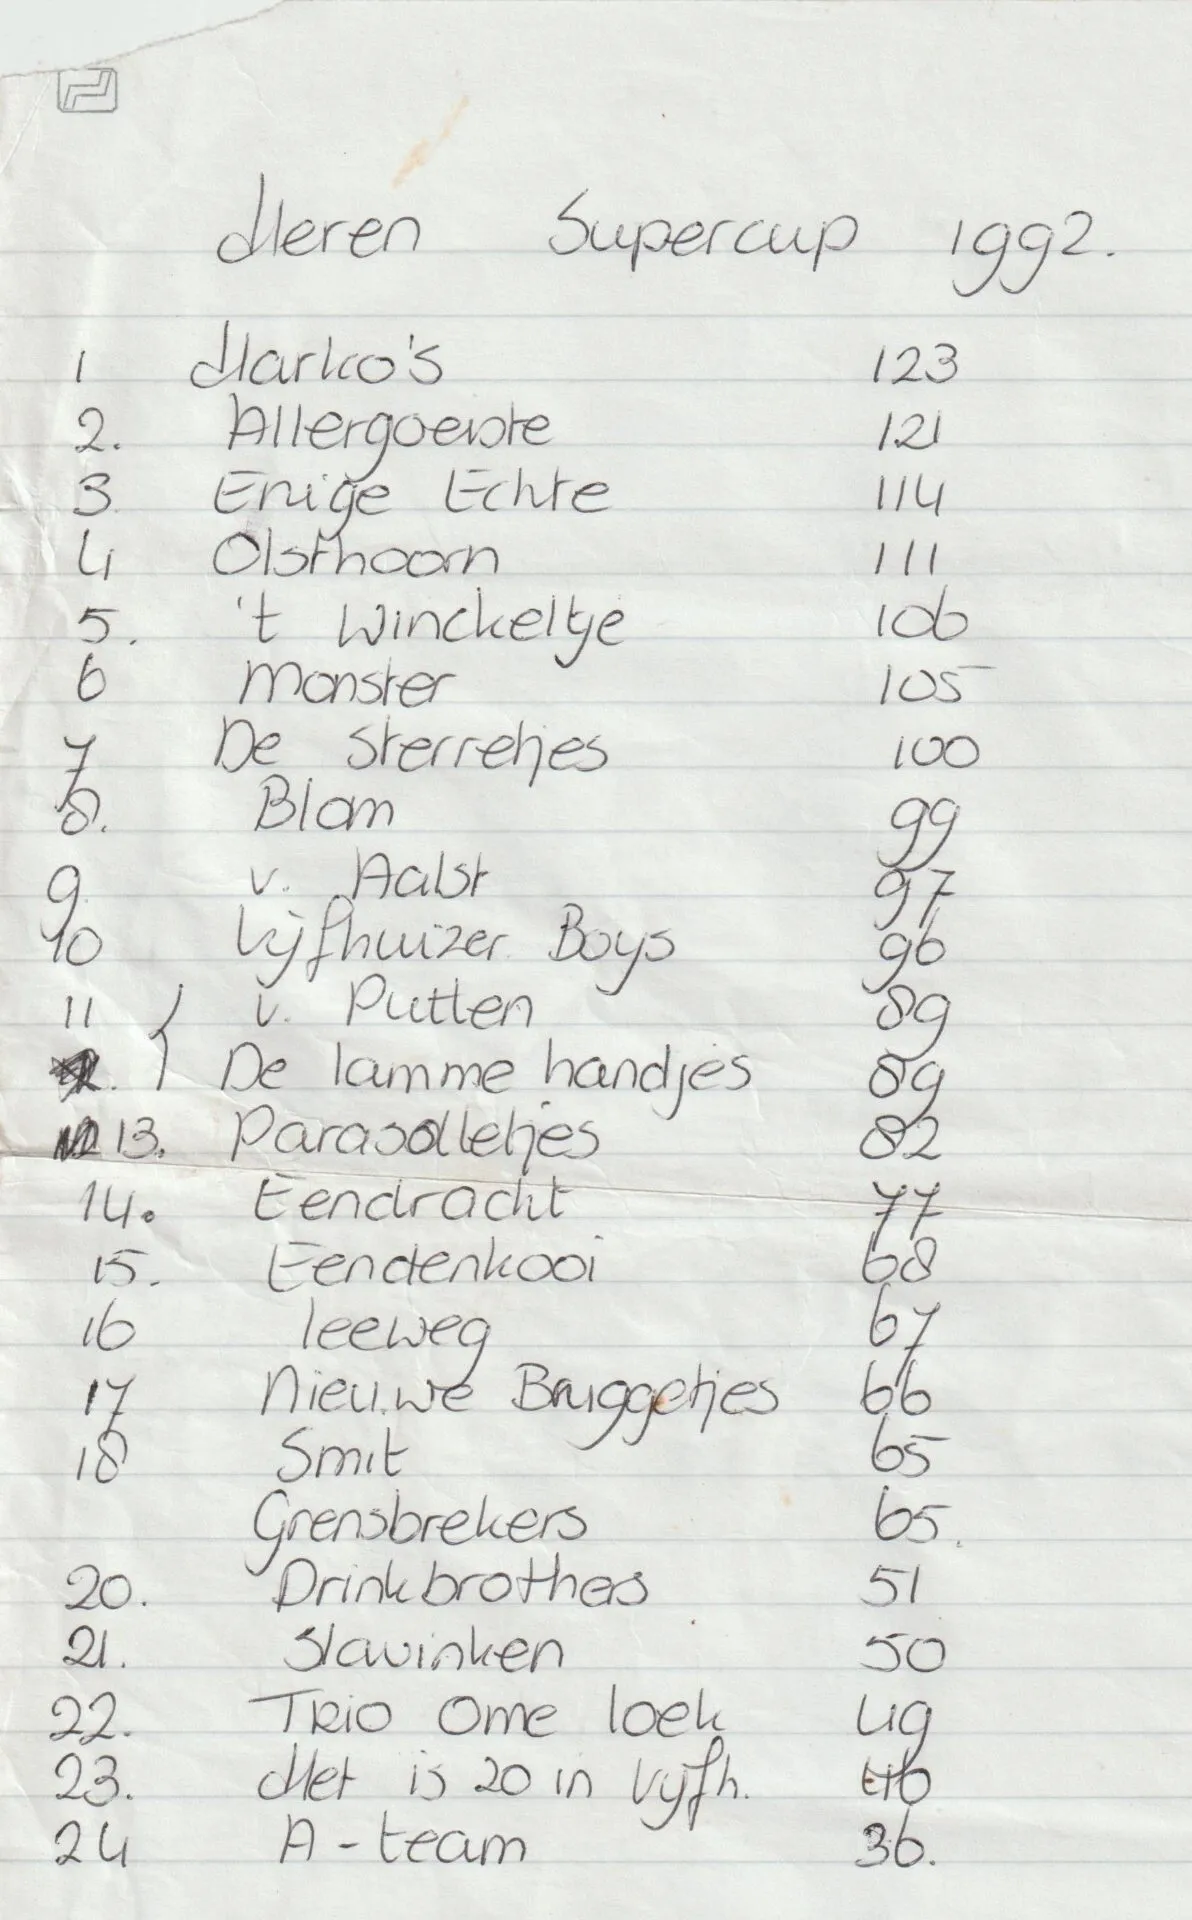 Heren Supercup 1992.
1 Harko's 123
2. Allergoedste 121
3. Enige Echte 114
4 Olsthoorn 111
5. 't Winckeltje 106
6 Monster 105
7 De Sterretjes 100
8. Blom 99
9. v. Aalst 97
10 Vijfhuizer Boys 96
11 v. Putten 89
De lamme handjes 89
13. Parasolletjes 82
14. Eendracht 77
15. Eendenkooi 68
16 leeweg 67
17 Nieuwe Bruggetjes 66
18 Smit 65
Grensbrekers 65.
20. Drinkbrothers 51
21. Slavinken 50
22. TRio Ome loek 49
23. Het is 20 in Vijfh. 46
24 A-team 36.